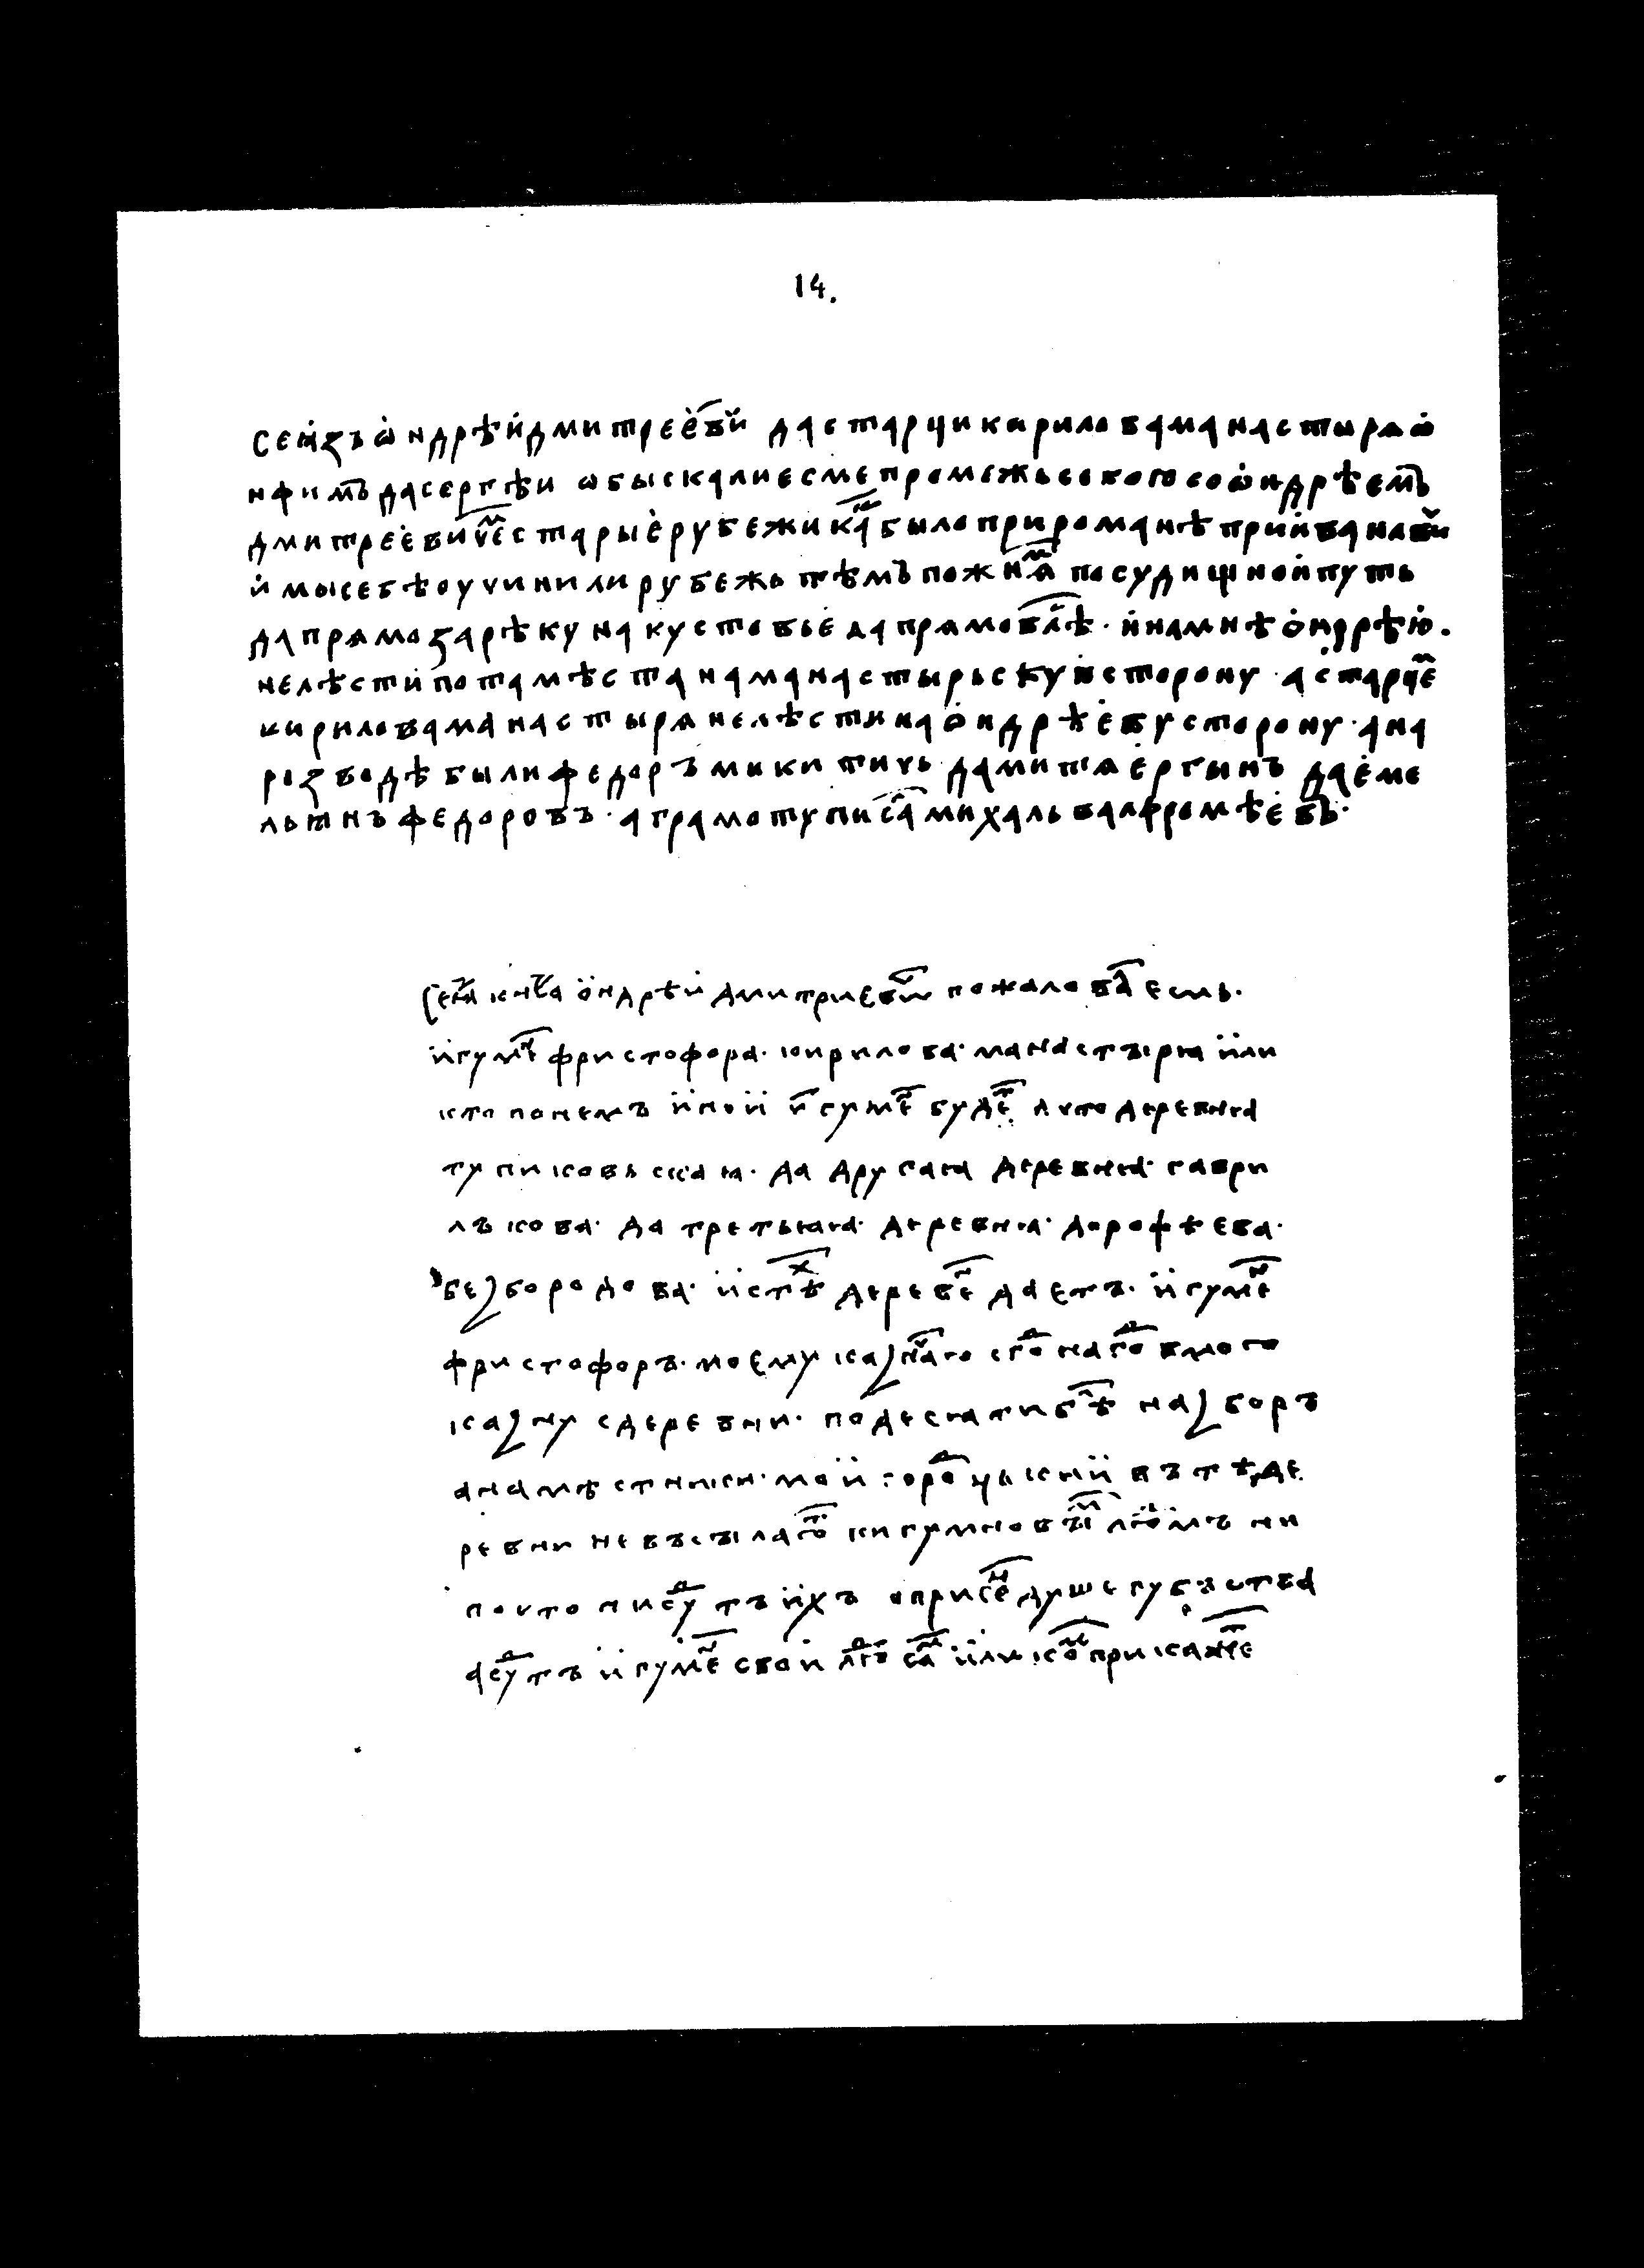 14.
се ꙗзъ ѡндрѣй дмитреевич да старци кирилова манастырѧ ѡ
нфимъ да сергѣи ѡбыскали есме промежь собою со ѡндрѣемъ
дмитреевичем старые рубежи как было при романѣ при иванович
и мы себѣ оучинили рубежь тѣмъ пожнѧм по судищной путь
да прѧмо за рѣку на кустовье да прѧмо в лѣ · и на мнѣ ондрѣю ·
не лѣсти по та мѣста на манастырьскую сторону · а старцем
кирилова манастырѧ не лѣсти на ондрѣеву сторону · а на
розводѣ были федоръ микитичь да митѧ ергынъ да еме
льянъ федоровъ · а грамоту писал михаль валфромѣевъ ·
се ꙗз кнѧз ꙗ ондрѣй дмитриевич пожаловал есмь ·
игумен фристофора · кирилова · манастырꙗ или
кто по немъ иной игумен будет а что деревнꙗ
тупиковьскаꙗ · да другаꙗ деревнꙗ · гаври
лъкова · да третьꙗꙗ · деревнꙗ · дорофѣева ·
безбородова · и с тѣх деревен даетъ · игумен
фристофоръ · моему казначю с году на год в мою
казну с деревни · по десꙗти бѣл на зборъ
а намѣстники · мои городцькии в тѣ де
ревни не въсылают к игумновым людемъ ни
по что ни судѧтъ ихъ оприсен душегубъства
а судитъ игумен свои люди сам или кому прикажет